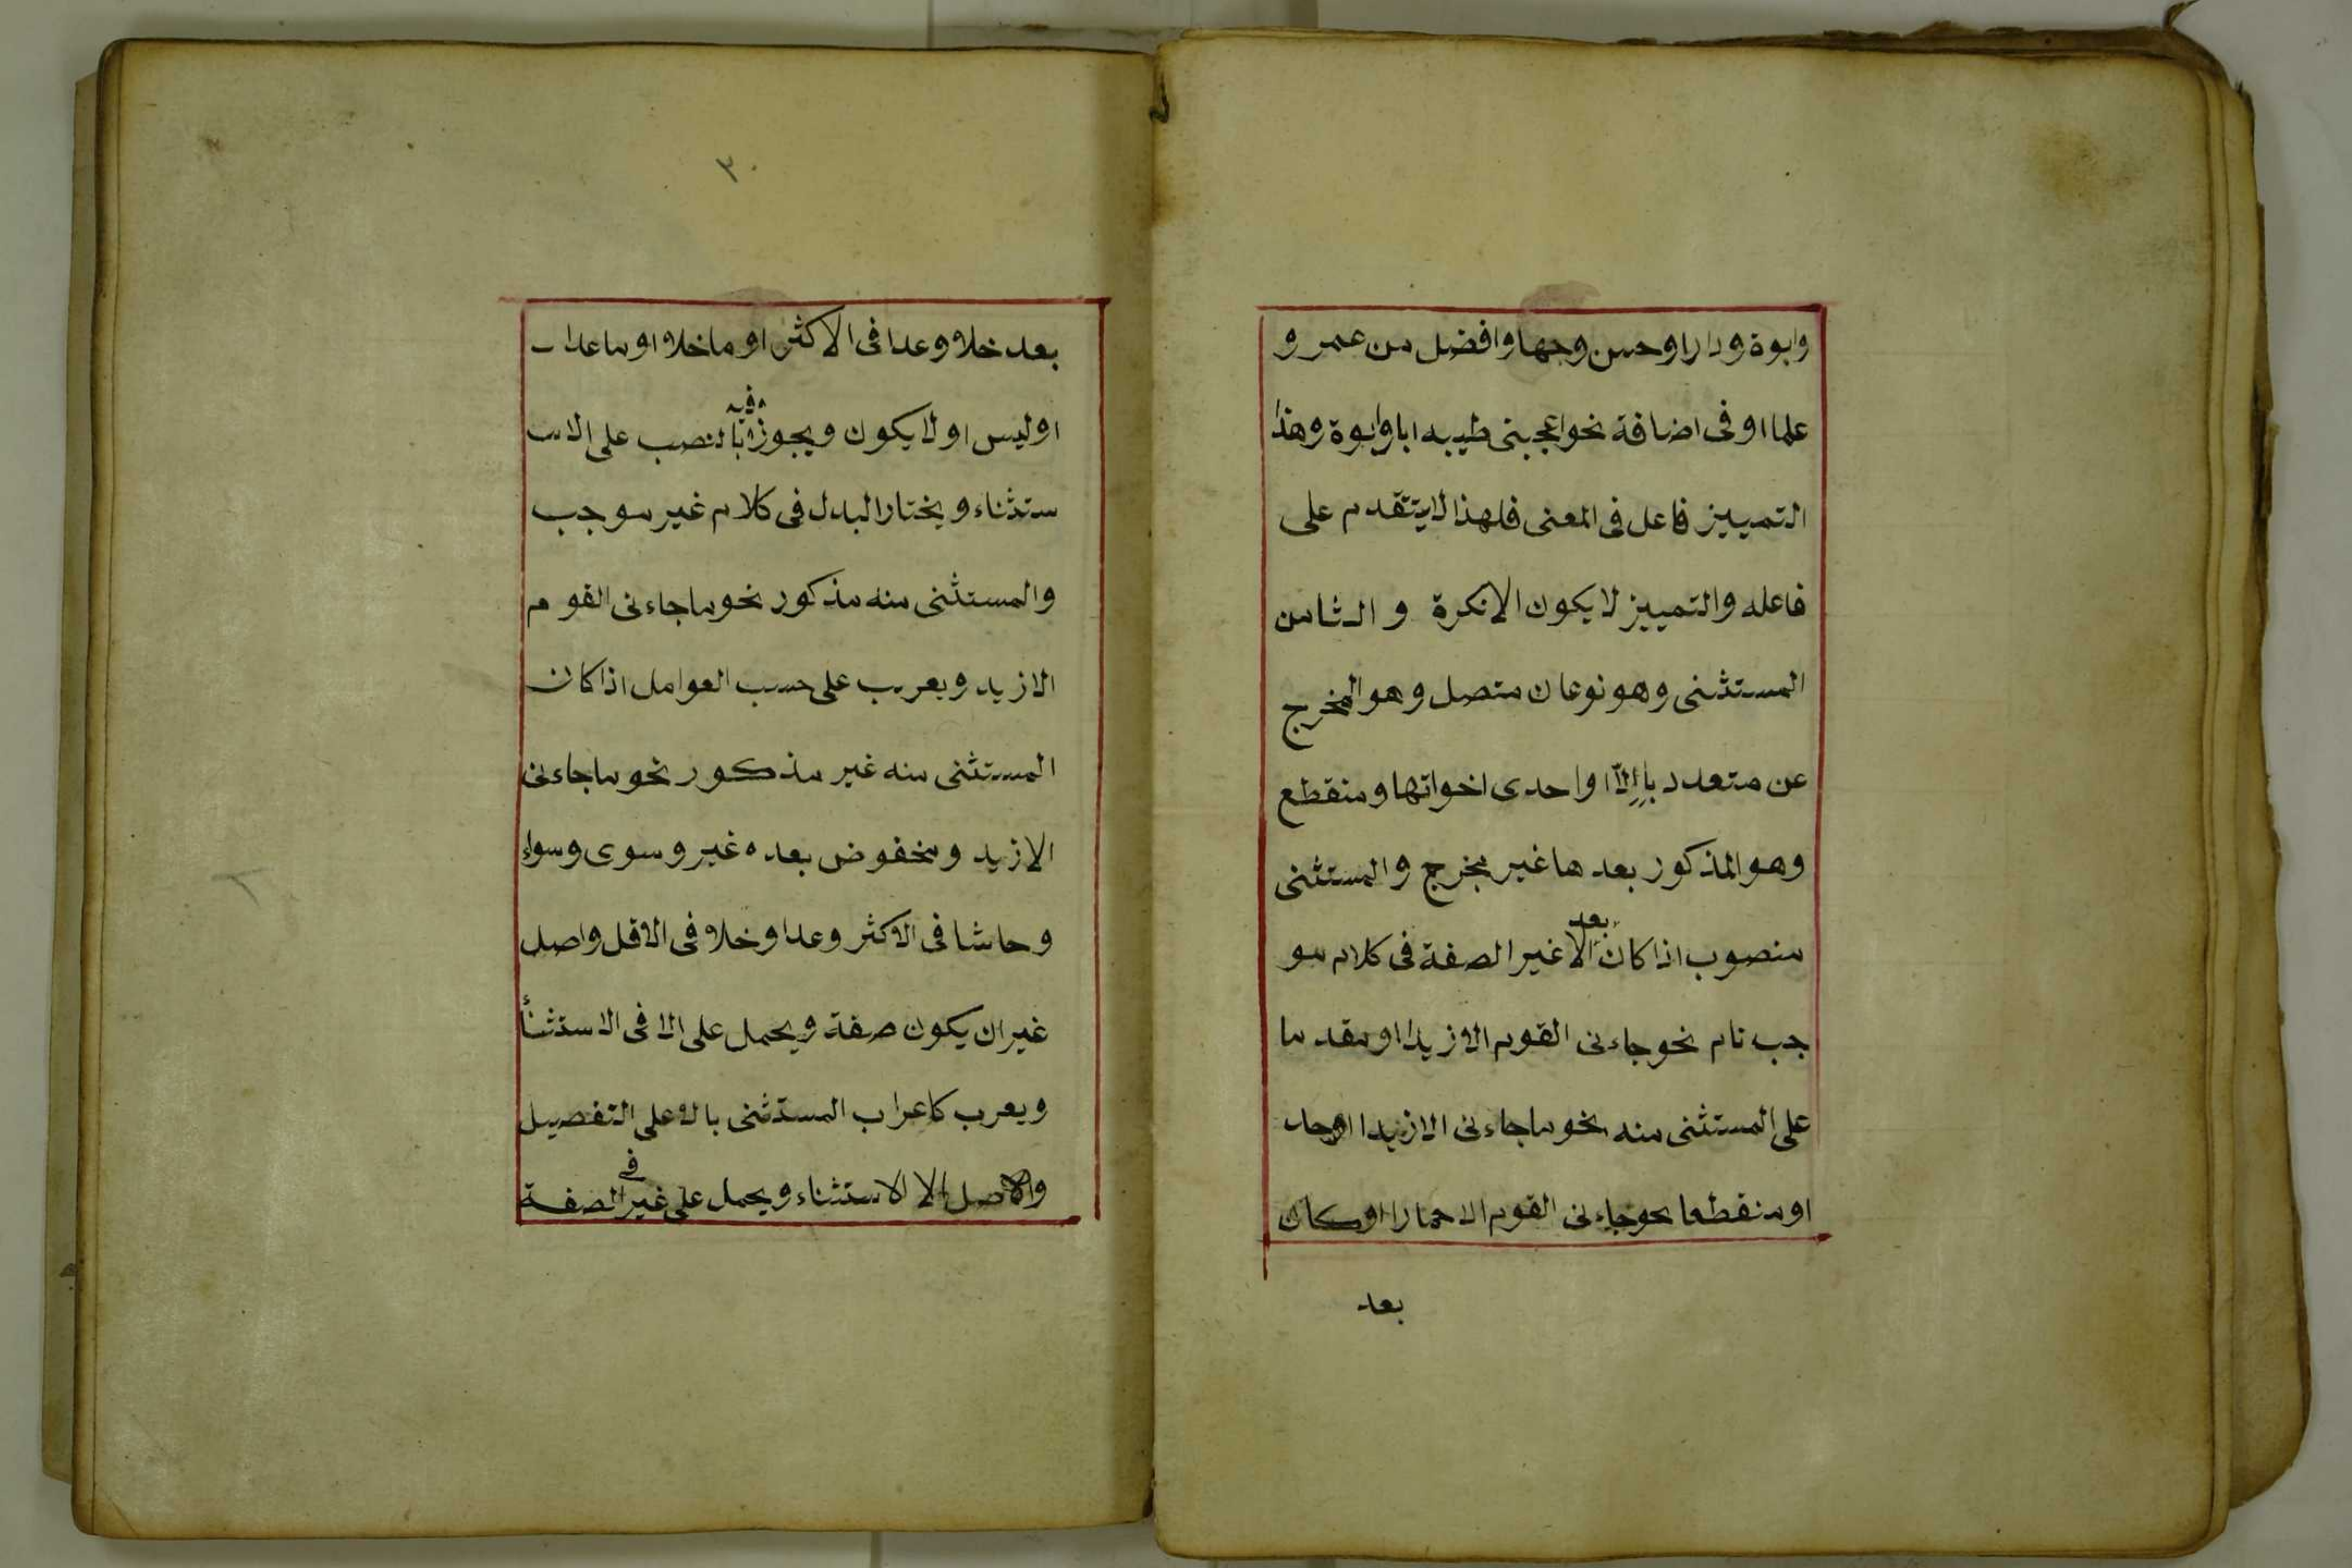 وابوة ودارا وحسن وجها وافضل من عمر و
علما او فى اضافة نحو اعجبنى طيبه ابا وابوة وهذا
التمييز فاعل فى المعنى فلهذا لا يتقدم على
فاعله والتمييز لا يكون الا نكرة و الثامن
المستثنى وهو نوعان متصل وهو المخرج
عن متعدد بإلّا او احدى اخواتها ومنقطع
وهو المذكور بعد ها غير مخرج والمستثنى
بعد
منصوب اذا كان الا غير الصفة فى كلام مو
جب تام نحو جاءنى القوم الا زيدا او مقد ما
على المستثنى منه نحو ما جاءنى الا زيدا احد
او منقطعا نحو جاءنى القوم الا حمارا او كان
بعد
٣٠
بعد خلا وعدا فى الاكثر او ما خلا او ما عدا
فيه
او ليس او لا يكون ويجوز بالنصب على الاس
ستثناء ويختار البدل فى كلام غير موجب
والمستثنى منه مذكور نحو ما جاءنى القوم
الا زيد ويعرب على حسب العوامل اذا كان
المستثنى منه غير مذكور نحو ما جاءنى
الا زيد ومخفوض بعده غير وسوى وسواء
وحاشا فى الاكثر وعدا وخلا فى الاقل واصل
غير ان يكون صفة ويحمل على الا فى الاستثنأ
ويعرب كاعراب المستثنى بالا على التفصيل
فى
والاصل الا الاستثناء ويحمل على غير الصفة